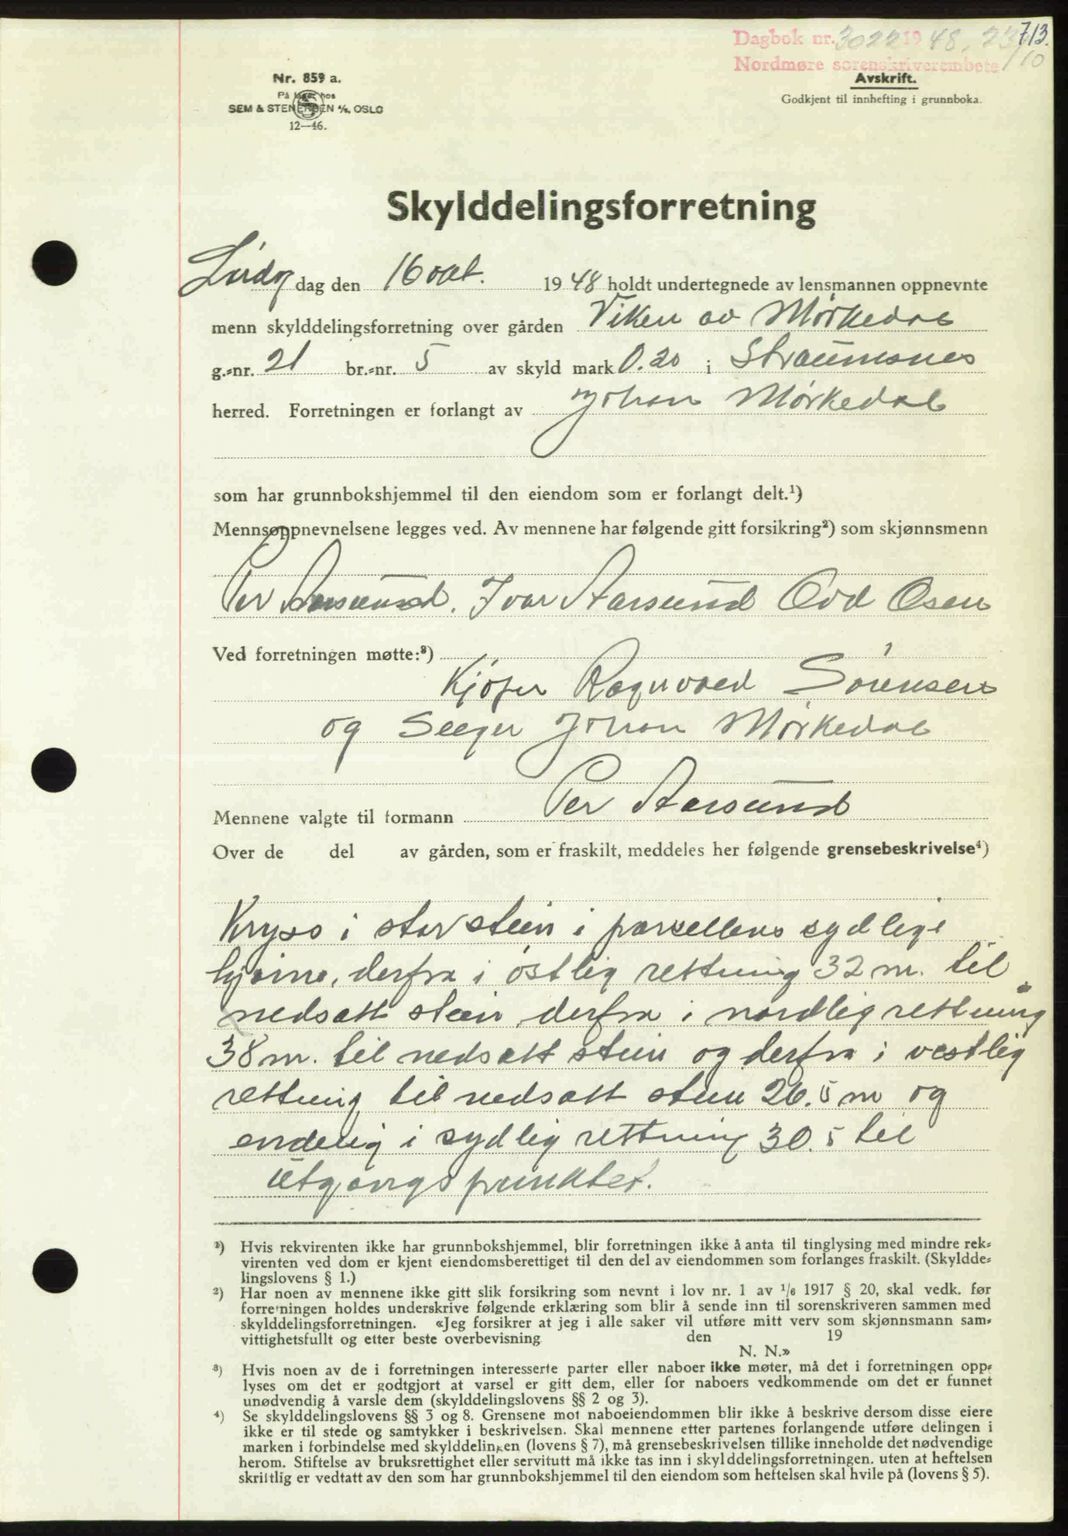 713.
Dagbok nr. 3022 1948, 23/10
Nordmøre sorenskriverembete
Nr. 859 a.
På lager hos
SEM & STENERSEN A/S, OSLO
12—46.
Avskrift.
Godkjent til innhefting i grunnboka.
Skylddelingsforretning
Lørdag dag den 16 okt. 1948 holdt undertegnede av lensmannen oppnevnte
menn skylddelingsforretning over gården Viken av Mørkedal
g.-nr. 21 br.-nr. 5 av skyld mark 0.20 i Straumsnes
herred. Forretningen er forlangt av Johan Mørkedal
som har grunnbokshjemmel til den eiendom som er forlangt delt.¹)
Mennsoppnevnelsene legges ved. Av mennene har følgende gitt forsikring²) som skjønnsmenn
Per Aarsund. Ivar Aarsund Odd Osen
Ved forretningen møtte:³)
Kjøper Ragnvald Sørensen
og Selger Johan Mørkedal
Mennene valgte til formann Per Aarsund
Over de del av gården, som er fraskilt, meddeles her følgende grensebeskrivelse⁴)
Kryss i stor stein i parsellens sydlige
hjørne, derfra i østlig rettning 32 m. til
nedsatt stein derfra i nordlig rettning
38 m. til nedsatt stein og derfra i vestlig
rettning til nedsatt stein 26.5 m og
endelig i sydlig rettning 30.5 til
utgangspunktet.
¹) Hvis rekvirenten ikke har grunnbokshjemmel, blir forretningen ikke å anta til tinglysing med mindre rek-
virenten ved dom er kjent eiendomsberettiget til den del av eiendommen som forlanges fraskilt. (Skyldde-
lingslovens § 1.)
²) Har noen av mennene ikke gitt slik forsikring som nevnt i lov nr. 1 av 1/6 1917 § 20, skal vedk. før
forretningen holdes underskrive følgende erklæring som blir å sende inn til sorenskriveren sammen med
skylddelingsforretningen. «Jeg forsikrer at jeg i alle saker vil utføre mitt verv som skjønnsmann sam-
vittighetsfullt og etter beste overbevisning den 19
N. N.»
³) Hvis noen av de i forretningen interesserte parter eller naboer ikke møter, må det i forretningen opp-
lyses om det er godtgjort at varsel er gitt dem, eller for naboers vedkommende om det er funnet
unødvendig å varsle dem (skylddelingslovens §§ 2 og 3).
⁴) Se skylddelingslovens §§ 3 og 8. Grensene mot naboeiendommen blir ikke å beskrive dersom disse eiere
ikke er til stede og samtykker i beskrivelsen. Skal mennene etter partenes forlangende utføre delingen i
marken i forbindelse med skylddelingen (lovens § 7), må grensebeskrivelsen tillike inneholde det nødvendige
herom. Stiftelse av bruksrettighet eller servitutt må ikke tas inn i skylddelingsforretningen, uten at heftelsen
skriftlig er vedtatt av den som har grunnbokshjemmel til den eiendom som heftelsen skal hvile på (lovens § 5).